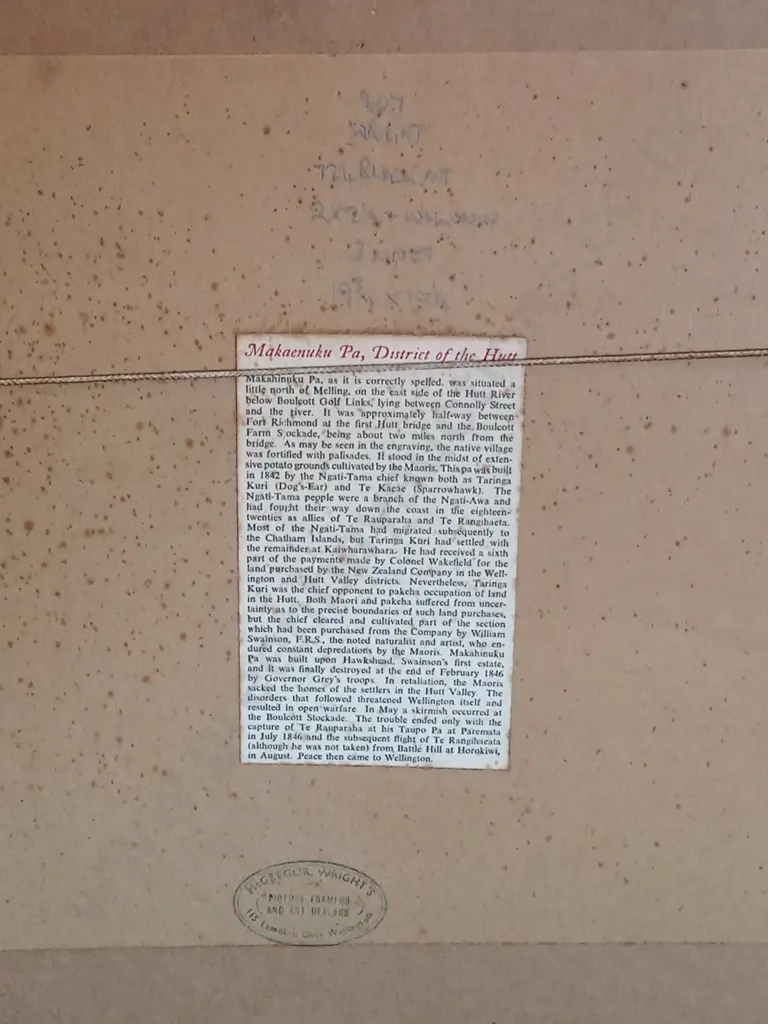 Makaenuku Pa, District of the Hutt
Makahinuku Pa, as it is correctly spelled, was situated a
little north of Melling, on the east side of the Hutt River
below Boulcott Golf Links, lying between Connolly Street
and the river. It was approximately half-way between
Fort Richmond at the first Hutt bridge and the Boulcott
Farm Stockade, being about two miles north from the
bridge. As may be seen in the engraving, the native village
was fortified with palisades. It stood in the midst of exten-
sive potato grounds cultivated by the Maoris. This pa was built
in 1842 by the Ngati-Tama chief known both as Taringa
Kuri (Dog's-Ear) and Te Kaeae (Sparrowhawk). The
Ngati-Tama people were a branch of the Ngati-Awa and
had fought their way down the coast in the eighteen-
twenties as allies of Te Rauparaha and Te Rangihaeta.
Most of the Ngati-Tama had migrated subsequently to
the Chatham Islands, but Taringa Kuri had settled with
the remainder at Kaiwharawhara. He had received a sixth
part of the payments made by Colonel Wakefield for the
land purchased by the New Zealand Company in the Well-
ington and Hutt Valley districts. Nevertheless, Taringa
Kuri was the chief opponent to pakeha occupation of land
in the Hutt. Both Maori and pakeha suffered from uncer-
tainty as to the precise boundaries of such land purchases,
but the chief cleared and cultivated part of the section
which had been purchased from the Company by William
Swainson, F.R.S., the noted naturalist and artist, who en-
dured constant depredations by the Maoris. Makahinuku
Pa was built upon Hawkshead, Swainson's first estate,
and it was finally destroyed at the end of February 1846
by Governor Grey's troops. In retaliation, the Maoris
sacked the homes of the settlers in the Hutt Valley. The
disorders that followed threatened Wellington itself and
resulted in open warfare. In May a skirmish occurred at
the Boulcott Stockade. The trouble ended only with the
capture of Te Rauparaha at his Taupo Pa at Paremata
in July 1846 and the subsequent flight of Te Rangihaeata
(although he was not taken) from Battle Hill at Horokiwi,
in August. Peace then came to Wellington.
McGREGOR WRIGHT'S
PICTURE FRAMERS
AND ART DEALERS
115 Lambton Quay Wellington